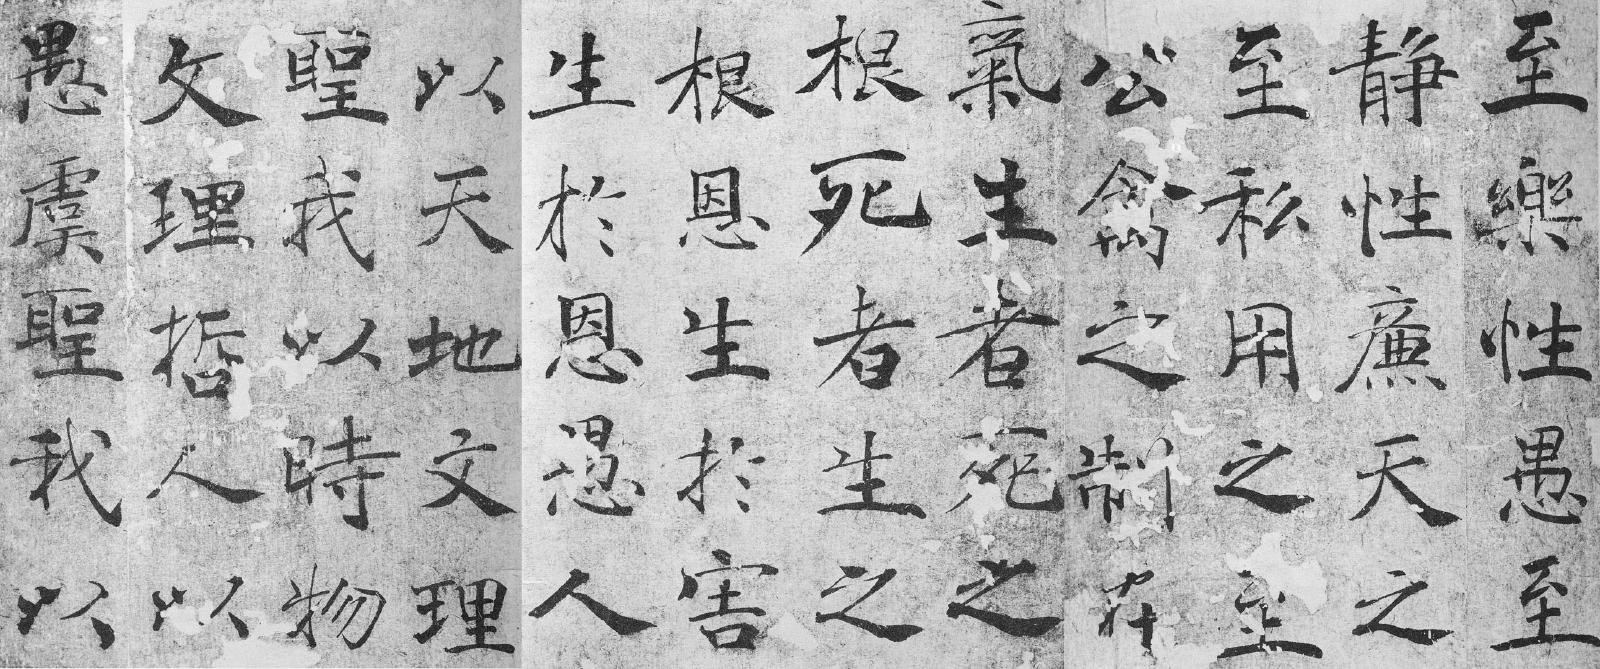 至樂性愚至
静性廉天之
至私用之至
公禽之制在
氣生者死之
根死者生之
根恩生於害
生於恩愚人
以天地文理
聖我以時物
文理哲人以
愚虞聖我以